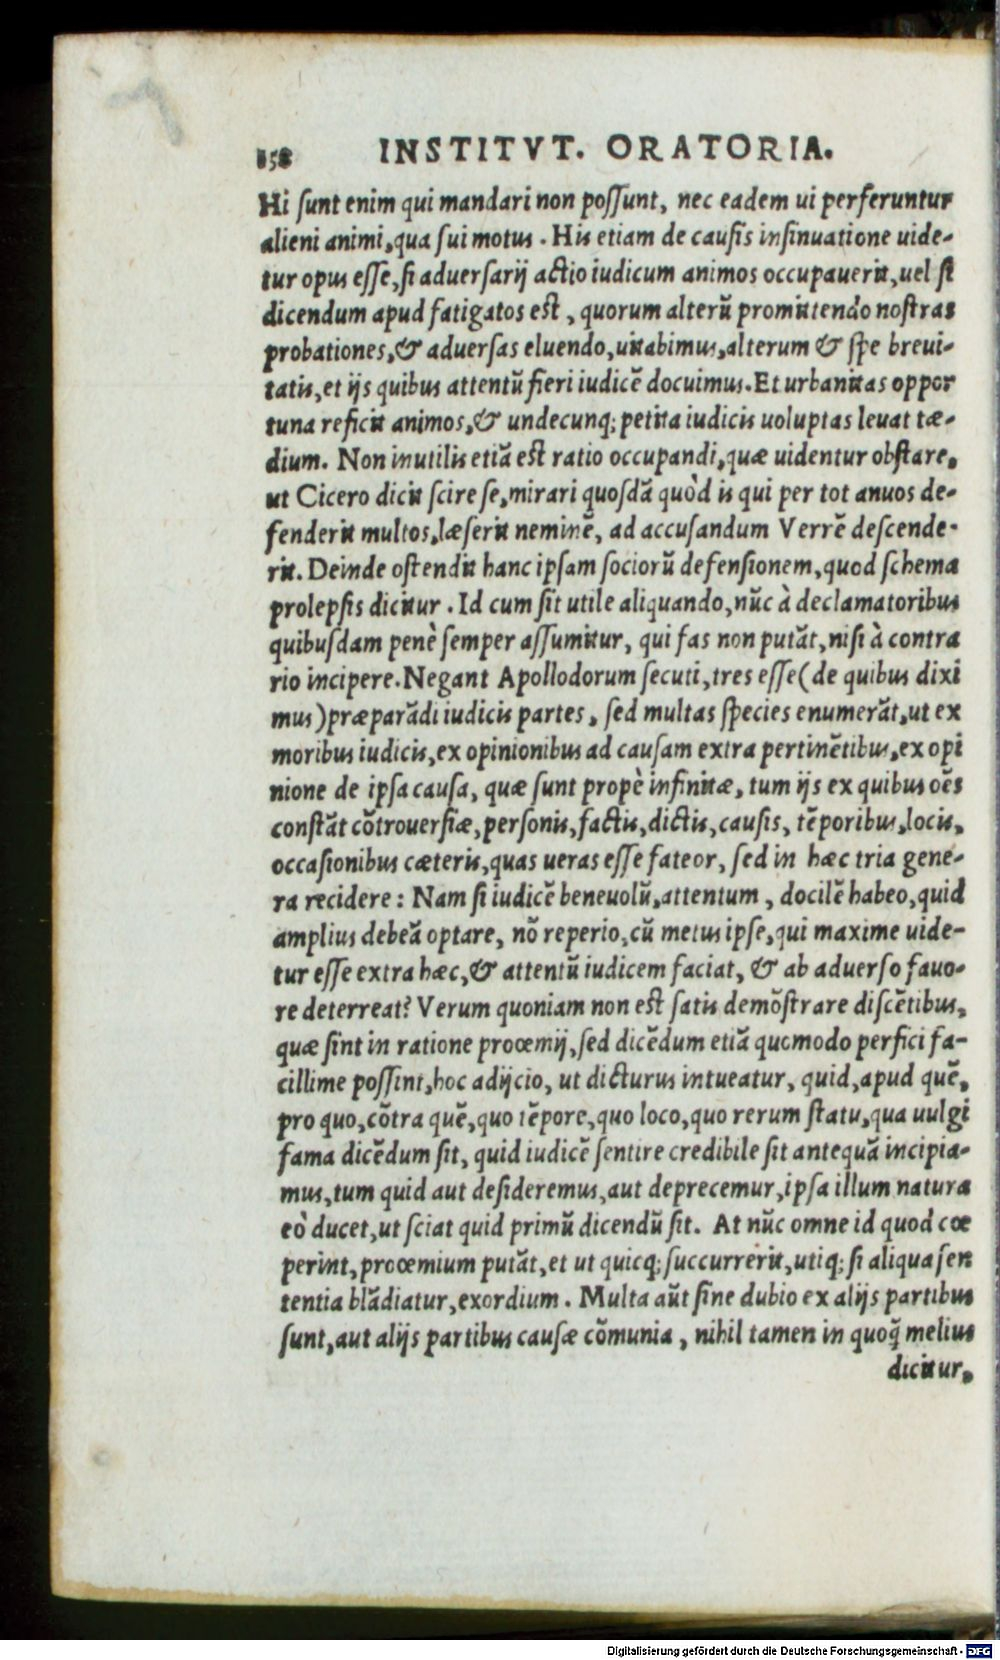 158 INSTITVT. ORATORIA.
Hi sunt enim qui mandari non possunt, nec eadem ui perferuntur
alieni animi, qua sui motus. His etiam de causis insinuatione uide-
tur opus esse, si aduersarij actio iudicum animos occupauerit, uel si
dicendum apud fatigatos est, quorum alterũ promittendo nostras
probationes, & aduersas eluendo, uitabimus, alterum & spe breui-
tatis, et ijs quibus attentũ fieri iudicẽ docuimus. Et urbanitas oppor
tuna reficit animos, & undecunq; petita iudicis uoluptas leuat tæ-
dium. Non inutilis etiã est ratio occupandi, quæ uidentur obstare,
ut Cicero dicit scire se, mirari quosdã quòd is qui per tot anuos de-
fenderit multos, læserit neminẽ, ad accusandum Verrẽ descende-
rit. Deinde ostendit hanc ipsam sociorũ defensionem, quod schema
prolepsis dicitur. Id cum sit utile aliquando, nũc à declamatoribus
quibusdam penè semper assumitur, qui fas non putãt, nisi à contra
rio incipere. Negant Apollodorum secuti, tres esse (de quibus dixi
mus) præparãdi iudicis partes, sed multas species enumerãt, ut ex
moribus iudicis, ex opinionibus ad causam extra pertinẽtibus, ex opi
nione de ipsa causa, quæ sunt propè infinitæ, tum ijs ex quibus oẽs
constãt cõtrouersiæ, personis, factis, dictis, causis, tẽporibus, locis,
occasionibus cæteris, quas ueras esse fateor, sed in hæc tria gene-
ra recidere: Nam si iudicẽ beneuolũ, attentum, docilẽ habeo, quid
amplius debeã optare, nõ reperio, cũ metus ipse, qui maxime uide-
tur esse extra hæc, & attentũ iudicem faciat, & ab aduerso fauo-
re deterreat? Verum quoniam non est satis demõstrare discẽtibus,
quæ sint in ratione proœmij, sed dicẽdum etiã quomodo perfici fa-
cillime possint, hoc adijcio, ut dicturus intueatur, quid, apud quẽ,
pro quo, cõtra quẽ, quo tẽpore, quo loco, quo rerum statu, qua uulgi
fama dicẽdum sit, quid iudicẽ sentire credibile sit antequã incipia-
mus, tum quid aut desideremus, aut deprecemur, ipsa illum natura
eò ducet, ut sciat quid primũ dicendũ sit. At nũc omne id quod cœ
perint, proœmium putãt, et ut quicq; succurrerit, utiq; si aliqua sen
tentia blãdiatur, exordium. Multa aũt sine dubio ex alijs partibus
sunt, aut alijs partibus causæ cõmunia, nihil tamen in quoq̃ melius
dicitur,
Digitalisierung gefördert durch die Deutsche Forschungsgemeinschaft - DFG